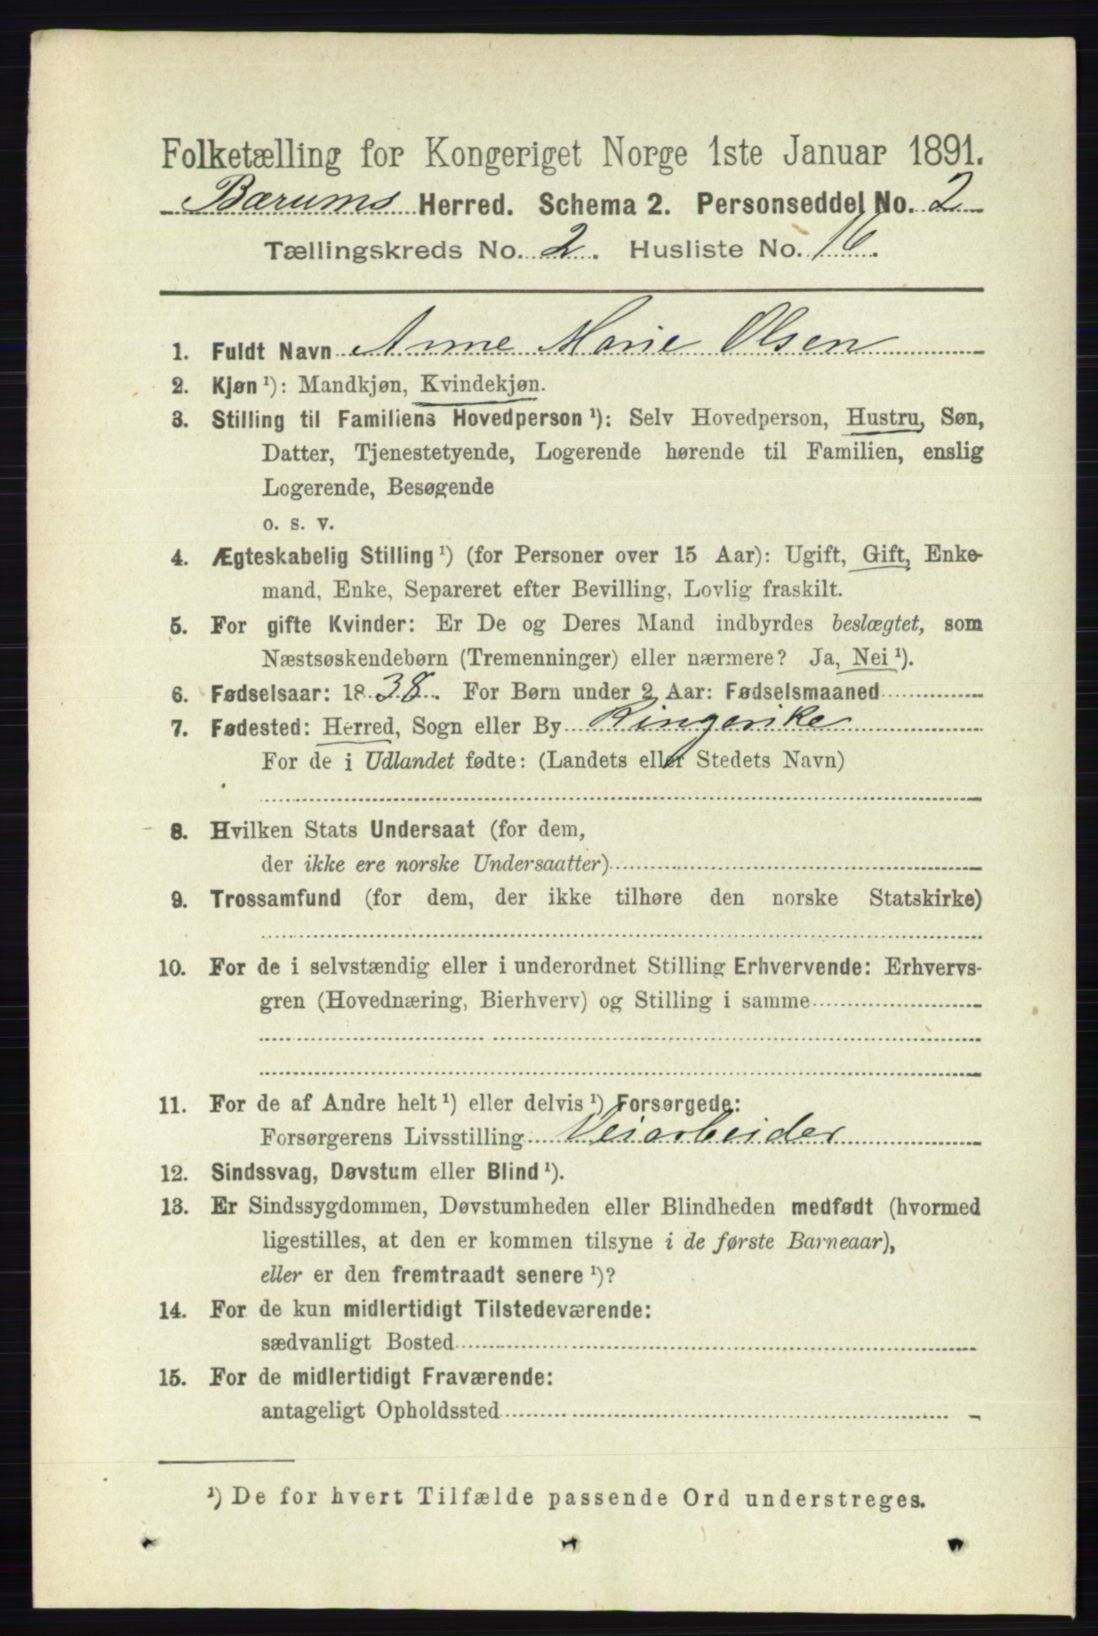 Folketælling for Kongeriget Norge 1ste Januar 1891.
Bærums Herred. Schema 2. Personseddel No. 2
Tællingskreds No. 2. Husliste No. 16.
1. Fuldt Navn Anne Marie Olsen
2. Kjøn ¹): Mandkjøn, Kvindekjøn.
3. Stilling til Familiens Hovedperson ¹): Selv Hovedperson, Hustru, Søn,
Datter, Tjenestetyende, Logerende hørende til Familien, enslig
Logerende, Besøgende
o. s. v.
4. Ægteskabelig Stilling ¹) (for Personer over 15 Aar): Ugift, Gift, Enke-
mand, Enke, Separeret efter Bevilling, Lovlig fraskilt.
5. For gifte Kvinder: Er De og Deres Mand indbyrdes beslægtet, som
Næstsøskendebørn (Tremenninger) eller nærmere? Ja, Nei ¹).
6. Fødselsaar: 1838. For Børn under 2 Aar: Fødselsmaaned
7. Fødested: Herred, Sogn eller By Ringerike
For de i Udlandet fødte: (Landets eller Stedets Navn)
8. Hvilken Stats Undersaat (for dem,
der ikke ere norske Undersaatter)
9. Trossamfund (for dem, der ikke tilhøre den norske Statskirke)
10. For de i selvstændig eller i underordnet Stilling Erhvervende: Erhvervs-
gren (Hovednæring, Bierhverv) og Stilling i samme
11. For de af Andre helt ¹) eller delvis ¹) Forsørgede:
Forsørgerens Livsstilling Veiarbeider
12. Sindssvag, Døvstum eller Blind ¹).
13. Er Sindssygdommen, Døvstumheden eller Blindheden medfødt (hvormed
ligestilles, at den er kommen tilsyne i de første Barneaar),
eller er den fremtraadt senere ¹)?
14. For de kun midlertidigt Tilstedeværende:
sædvanligt Bosted
15. For de midlertidigt Fraværende:
antageligt Opholdssted
¹) De for hvert Tilfælde passende Ord understreges.